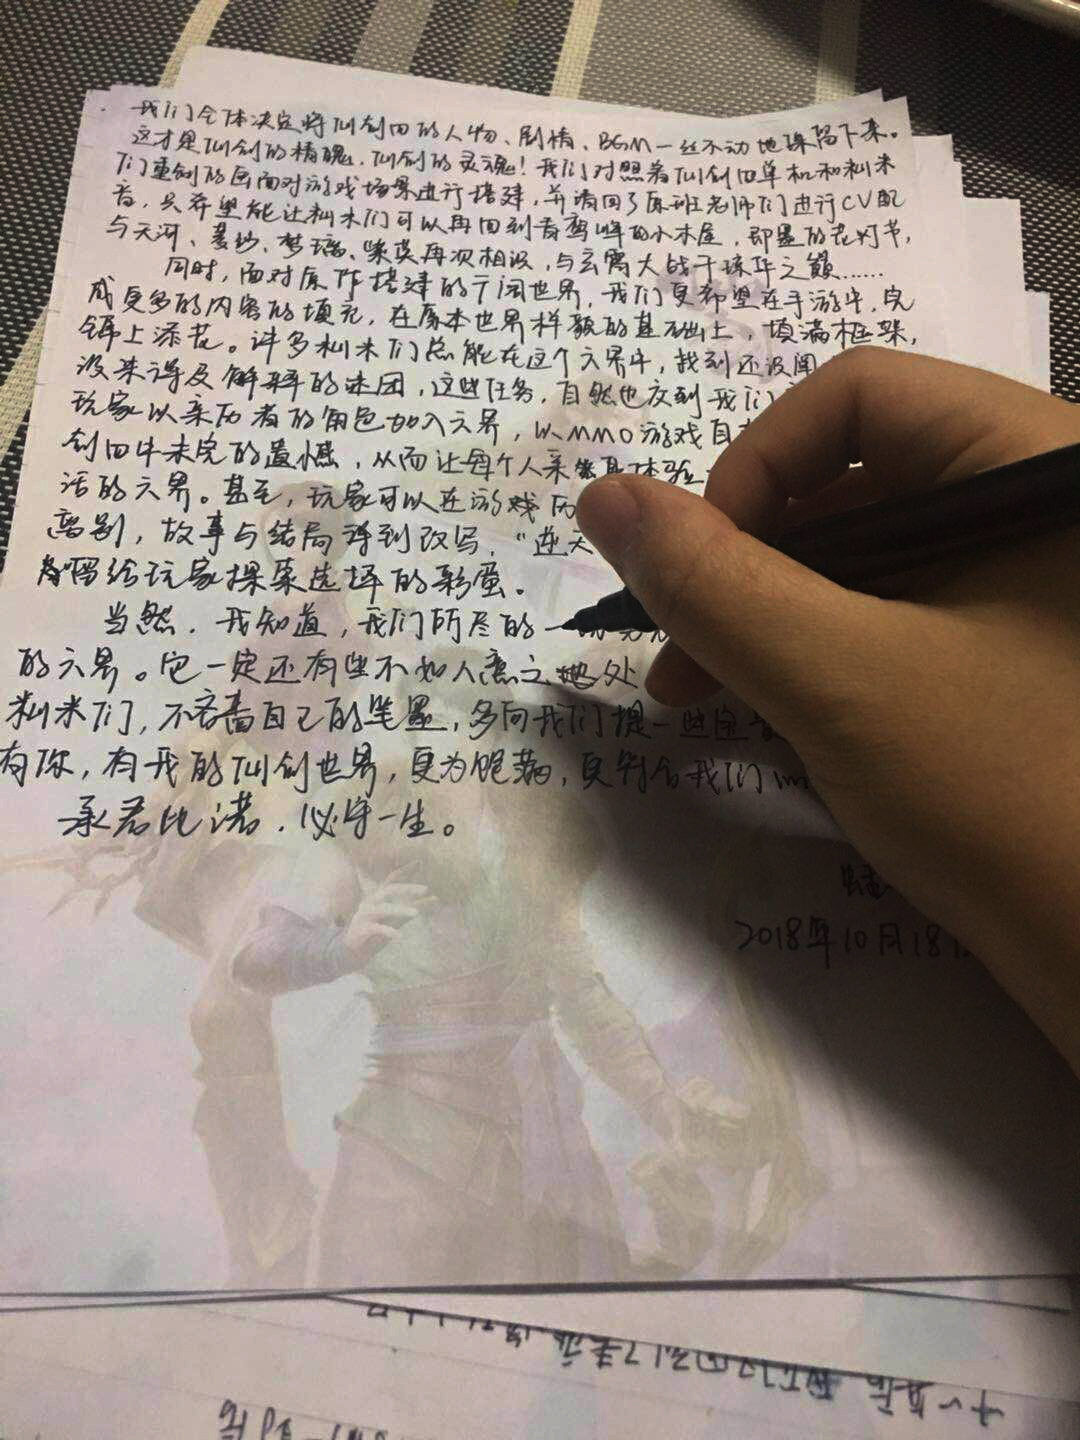 我们全体决定将仙剑四的人物、剧情、BGM一丝不动地保留下来。
这才是仙剑的精魄，仙剑的灵魂！我们对照着仙剑四单机和籼米
们重制的画面对游戏场景进行搭建，并请回了原班老师们进行CV配
音，只希望能让籼米们可以再回到青鸾峰的小木屋，即墨的花灯节，
与天河、菱纱、梦璃、紫英再次相识，与玄霄大战于琼华之巅……
同时，面对原作搭建的广阔世界，我们更希望在手游中，完
成更多的内容的填充，在原本世界样貌的基础上，填满框架，
锦上添花。许多籼米们总能在这个六界中，找到还没闻
没来得及解释的迷团，这些任务，自然也交到我们
玩家以亲历者的角色加入六界，以MMO游戏自
剑四中未完的遗憾，从而让每个人亲身体验
活的六界。甚至，玩家可以在游戏历
离别，故事与结局得到改写，“逆天
留给玩家探索选择的彩蛋。
当然，我知道，我们所尽的一
的六界。它一定还有些不如人意之处
籼米们，不吝啬自己的笔墨，多向我们提一些宝
有你，有我的仙剑世界，更为饱满，更符合我们
承君此诺，必守一生。
2018年10月18